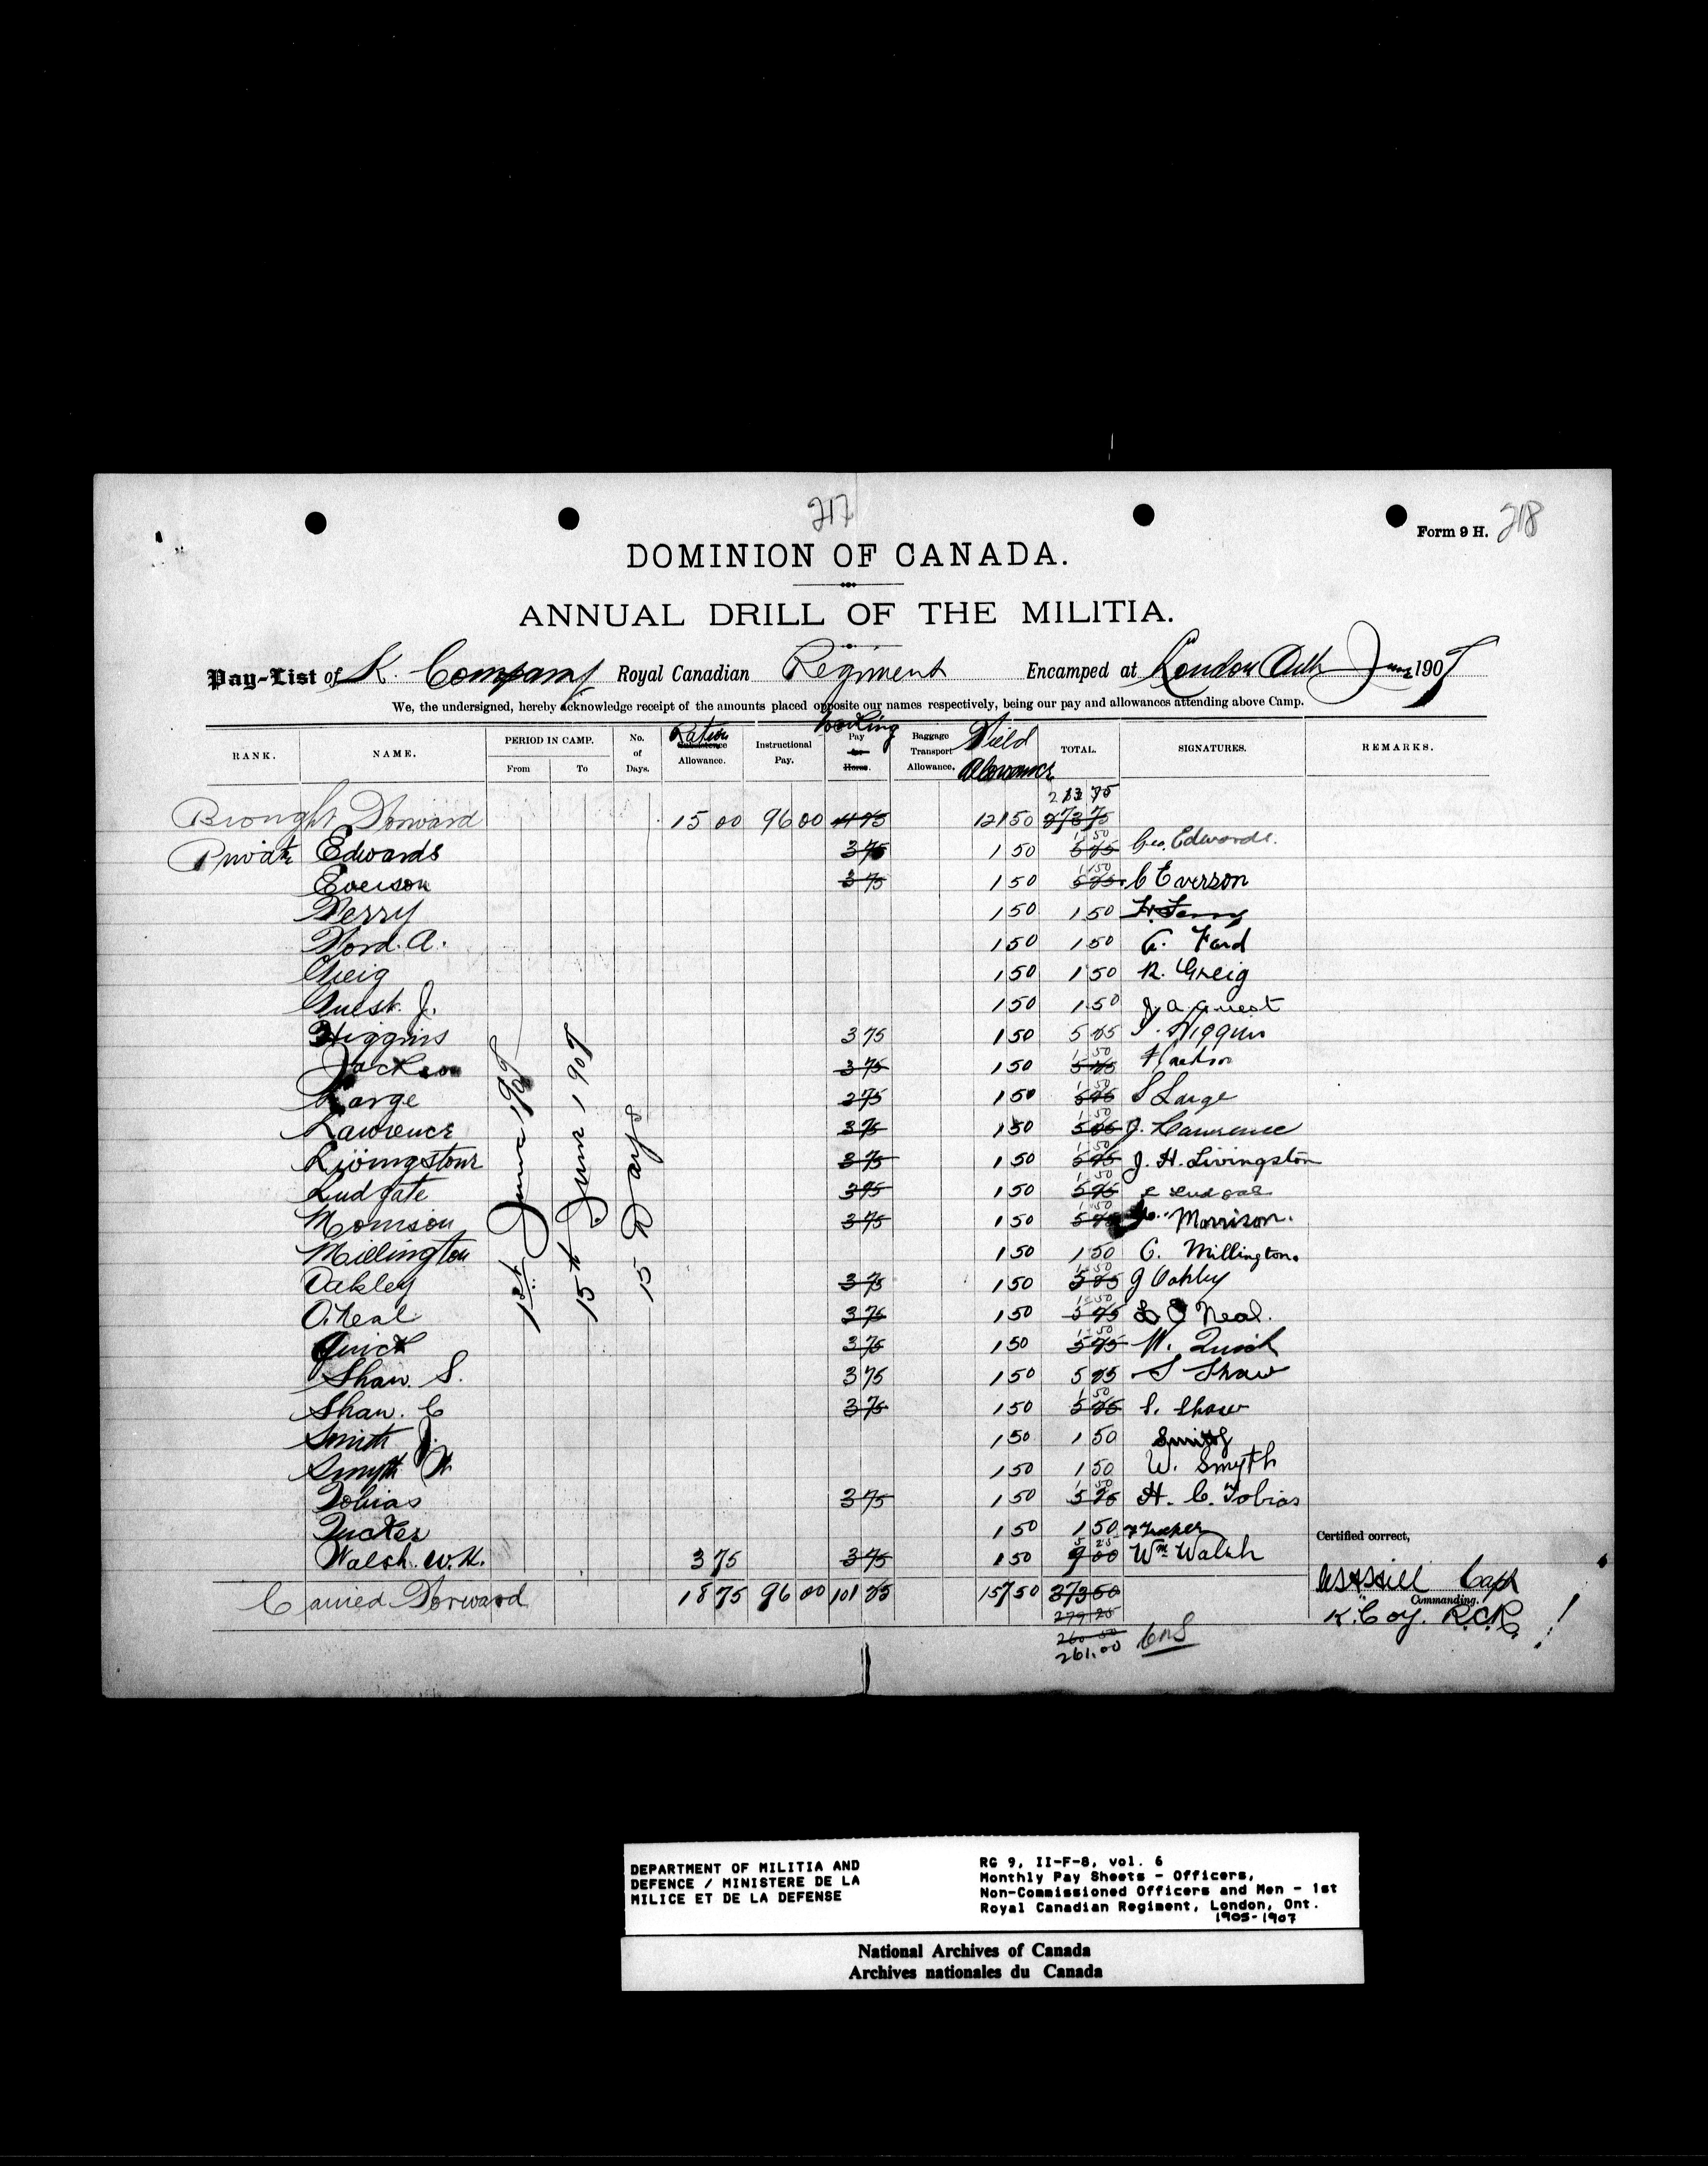 217
Form 9 H. 218
DOMINION OF CANADA.
ANNUAL DRILL OF THE MILITIA.
Pay-List of K. Company Royal Canadian Regiment Encamped at London Ont June 1907
We, the undersigned, hereby acknowledge receipt of the amounts placed opposite our names respectively, being our pay and allowances attending above Camp.
RANK. NAME. PERIOD IN CAMP. From To No. of Days. Ration Subsistence Allowance. Instructional Pay. Cooking Pay for Horse. Baggage Transport Allowance. Field Allowance TOTAL. SIGNATURES. REMARKS.
1st June 1907
15th June 1907
15 Days
Brought Forward 15 00 96 00 121 50
Private Edwards 3 75 1 50 5 25 1 50 Geo. Edwards.
Everson 3 75 1 50 5 25 1 50 C Everson
Ferry 1 50 1 50
Ford. A. 1 50 1 50 A. Ford
Greig 1 50 1 50 R. Greig
Guest. J. 1 50 1 50 J. A Guest
Higgins 3 75 1 50 5 25 Higgins
Jackson 3 75 1 50 5 25 1 50
Large 3 75 1 50 5 25 1 50 S Large
Lawrence 3 75 1 50 5 25 1 50 J. Lawrence
Livingstone 3 75 1 50 5 25 1 50 J. H. Livingston
Ludgate 3 75 1 50 5 25 1 50
Morrison 3 75 1 50 5 25 1 50 Morrison.
Millington 1 50 1 50 C. Millington.
Oakley 3 75 1 50 5 25 1 50 J Oakley
O.Neal 3 75 1 50 5 25 1 50 O Neal.
Quick 3 75 1 50 5 25 1 50 W. Quick
Shaw. S. 3 75 1 50 5 25 S Shaw
Shaw. C 3 75 1 50 5 25 1 50 Shaw
Smith J. 1 50 1 50 Smith
Smyth W 1 50 1 50 W. Smyth
Tobias 3 75 1 50 5 25 1 50 H. C. Tobias
Tucker 1 50 1 50 Tucker
Walsh. W.H. 3 75 3 75 1 50 9 00 5 25 Wm Walsh
Carried Forward 18 75 96 00 101 25 157 50 373 50
279 25
260 50
261.00
Certified correct,
Capt
Commanding.
K. Coy. R.C.R.
DEPARTMENT OF MILITIA AND
DEFENCE / MINISTERE DE LA
MILICE ET DE LA DEFENSE
RG 9, II-F-8, vol. 6
Monthly Pay Sheets - Officers,
Non-Commissioned Officers and Men - 1st
Royal Canadian Regiment, London, Ont.
1905-1907
National Archives of Canada
Archives nationales du Canada